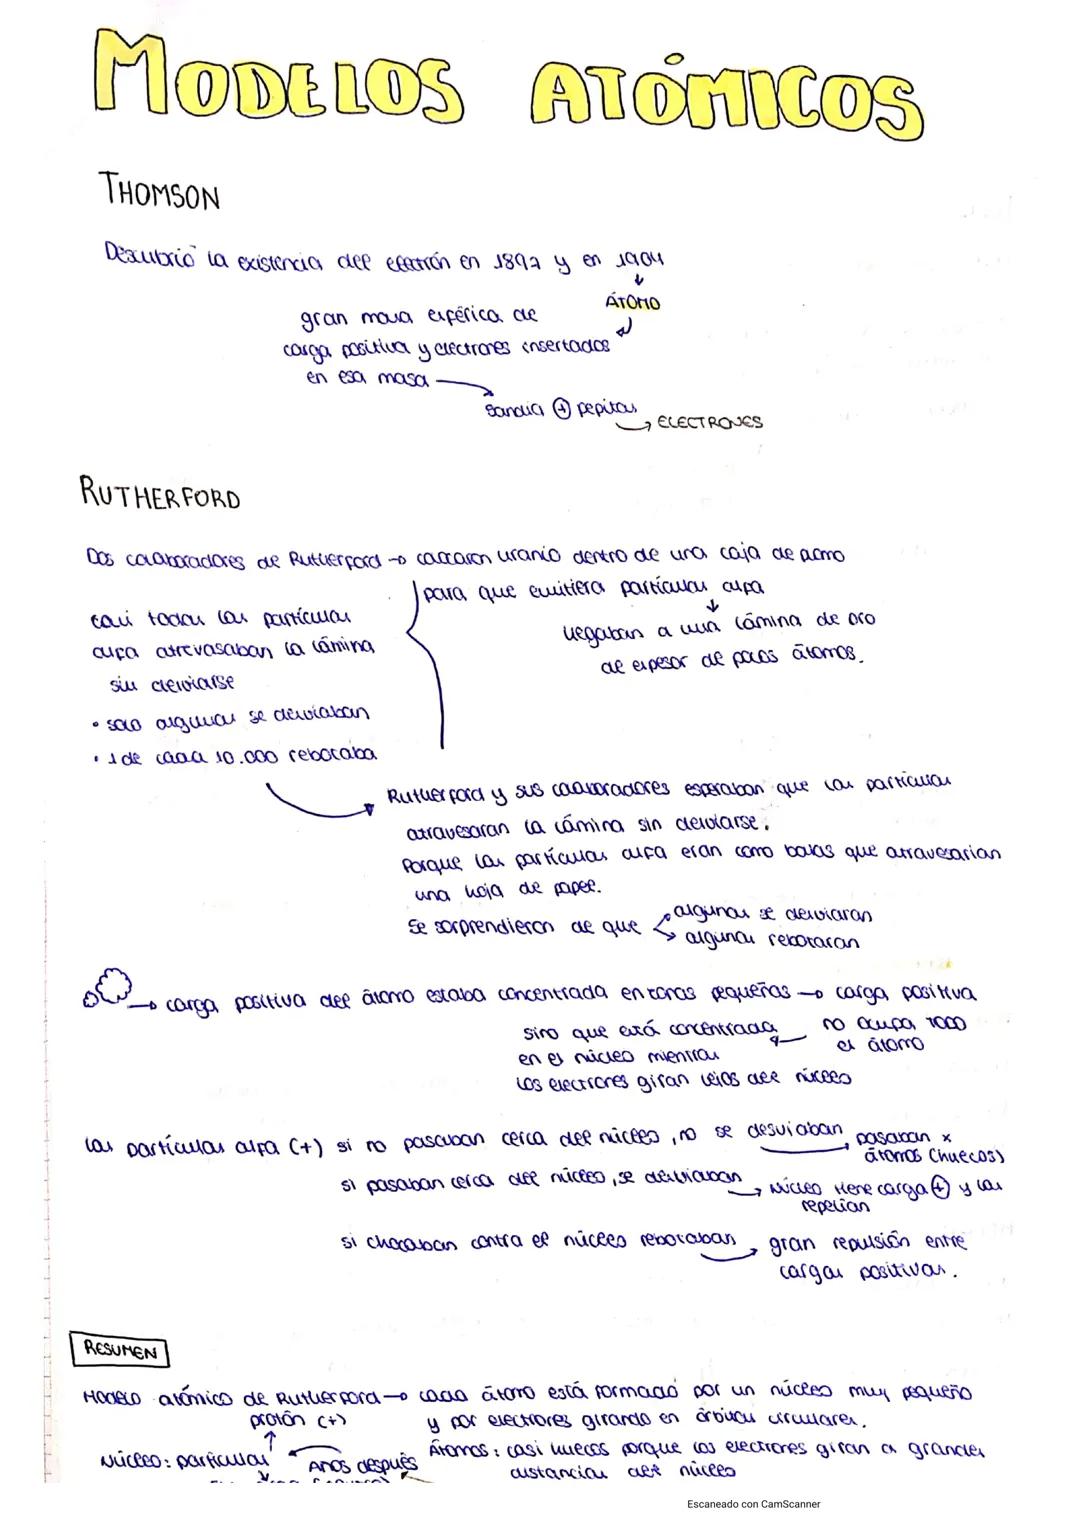 MODELOS ATÓMICOS
THOMSON
Descubrió la existencia del electrón en 1897 y en 1904
ÁTOMO
gran masa esférica de
carga positiva y electrones insertados
en esa masa
Sandía + pepitas
ELECTRONES
RUTHERFORD
Dos colaboradores de Rutherford → colocaron uranio dentro de una caja de plomo
para que emitiera partículas alfa
llegaban a una lámina de oro
de espesor de pocos átomos.
casi todas las partículas
alfa atrevasaban la lámina
sin desviarse
• solo algunas se desviaban
• 1 de cada 10.000 rebotaba
Rutherford y sus colaboradores esperaban que las partículas
atravesaran la lámina sin desviarse.
Porque las partículas alfa eran como balas que atravesarían
una hoja de papel.
Se sorprendieron de que
algunas se desviaran
algunas rebotaran
→ carga positiva del átomo estaba concentrada en zonas pequeñas → carga positiva
no ocupa todo
el átomo
sino que está concentrada
en el núcleo mientras
los electrones giran lejos del núcleo
las partículas alfa (+) si no pasaban cerca del núcleo, no se desviaban
pasaban x
átomos (huecos)
si pasaban cerca del núcleo, se desviaban
núcleo tiene carga + y las
repelían
si chocaban contra el núcleo rebotaban
gran repulsión entre
cargas positivas.
RESUMEN
Modelo atómico de Rutherford → cada átomo está formado por un núcleo muy pequeño
y por electrones girando en órbitas circulares.
protón (+)
Núcleo: partículas
Años después
Átomos: casi huecos porque los electrones giran a grandes
distancias del núcleo
Escaneado con CamScanner